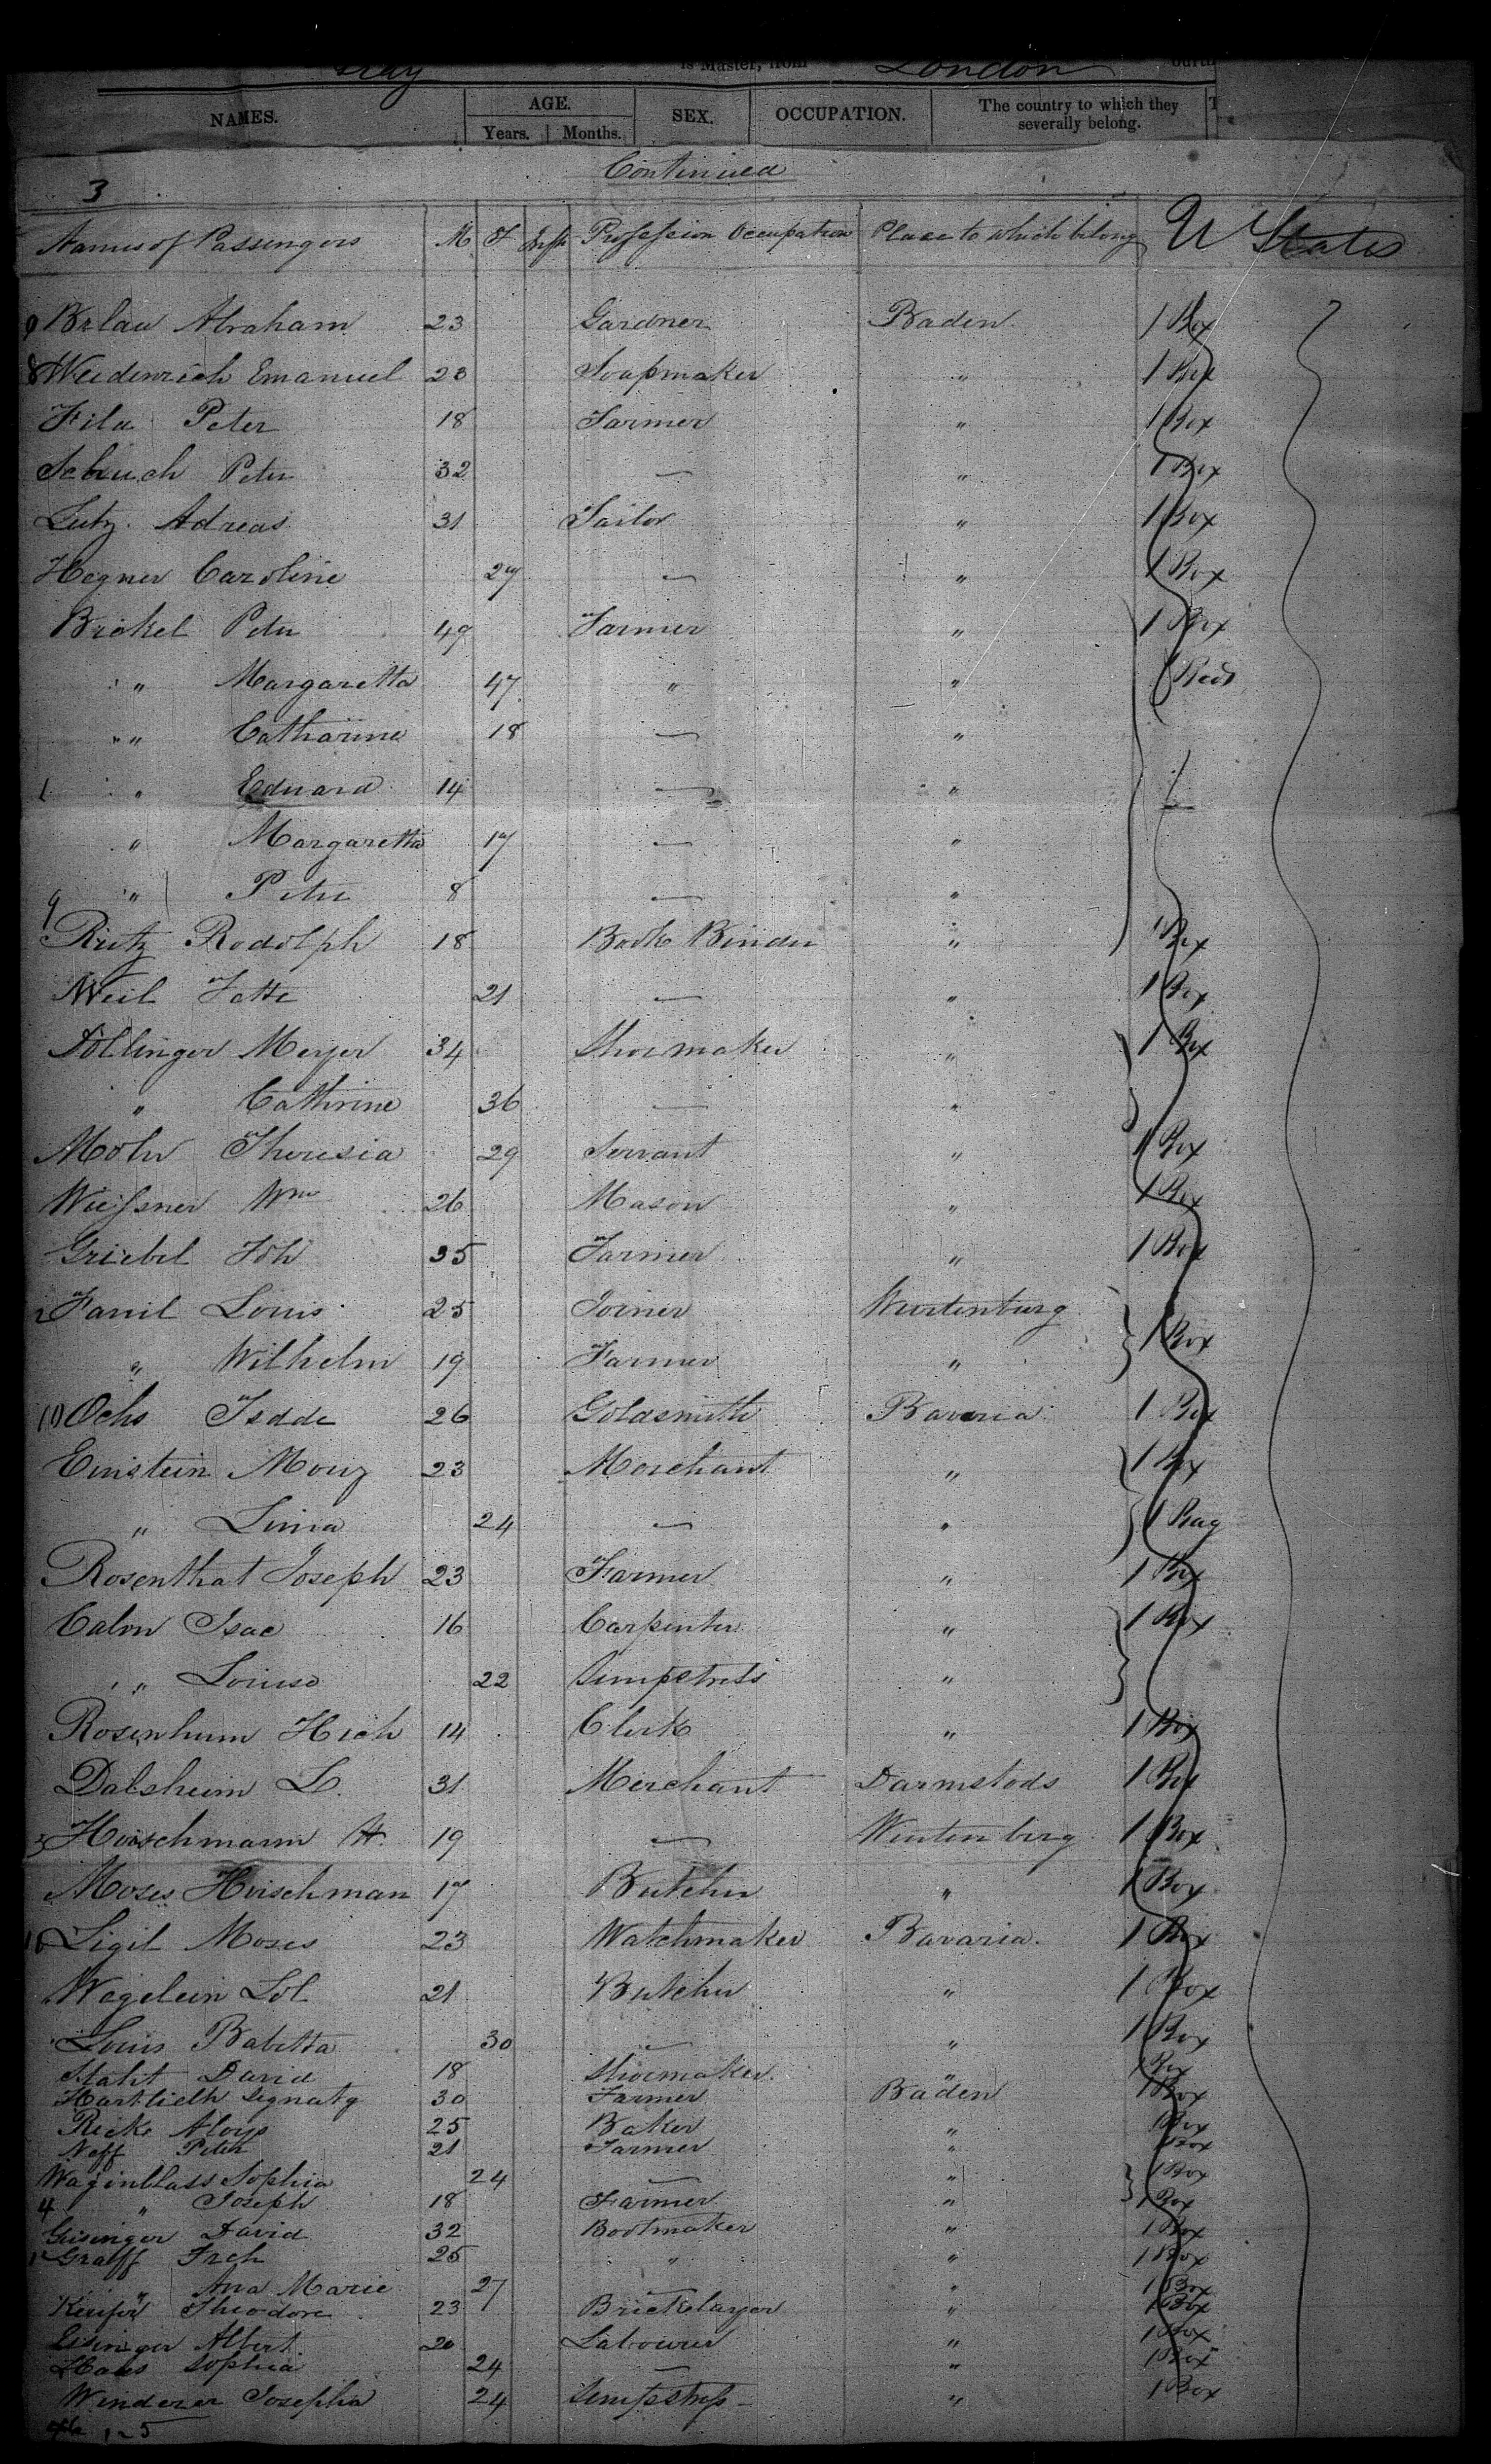 is Master, from London
NAMES. AGE. SEX. OCCUPATION. The country to which they severally belong.
Years. Months.
Continued
3
Names of Passengers M F Inft Profession Occupation Place to which belong U States
Brlau Abraham 23 Gardner Baden 1 Box
Weidenrich Emanuel 23 Soapmaker " 1 Box
Fila Peter 18 Farmer " 1 Box
Schuch Peter 32 — " 1 Box
Lutz Adreas 31 Tailor " 1 Box
Hegner Caroline 27 — " 1 Box
Brakel Peter 49 Farmer " 1 Box
" Margaretta 47 " " Beds
" Catharine 18 — "
" Eduard 14 — "
" Margaretta 17 — "
" Peter 8 — "
Rutz Rodolph 18 Book Binder " 1 Box
Weil Jette 21 — " 1 Box
Dollinger Meyer 34 Shoemaker " 1 Box
" Cathrine 36 — "
Mohr Theresia 29 Servant " 1 Box
Wiessner Wm 26 Mason " 1 Box
Griebel Joh 35 Farmer " 1 Box
Fanil Louis 25 Joiner Wurtenburg 1 Box
" Wilhelm 19 Farmer "
Ochs Isdde 26 Goldsmith Bavaria 1 Box
Einstein Mouz 23 Merchant " 1 Box
" Linia 24 — " 1 Bag
Rosenthal Joseph 23 Farmer " 1 Box
Calm Isac 16 Carpenter " 1 Box
" Louise 22 Sempstress "
Rosenhum Hich 14 Clerk " 1 Box
Dalsheim L. 31 Merchant Darmstads 1 Box
Hirschmann H. 19 — Wurtenberg 1 Box
Moses Hirschman 17 Butcher " 1 Box
Ligil Moses 23 Watchmaker Bavaria 1 Box
Wagelein Sol 21 Butcher " 1 Box
Louis Babetta 30 — " 1 Box
Staht David 18 Shoemaker " 1 Box
Hartlieth Ignatz 30 Farmer Baden 1 Box
Ricke Aloys 25 Baker " 1 Box
Neff Peter 21 Farmer " 1 Box
Waginblass Sophia 24 — " 1 Box
" Joseph 18 Farmer " 1 Box
Geisinger David 32 Bootmaker " 1 Box
Graff Frch 25 " " 1 Box
" Ana Marie 27 — " 1 Box
Keiifer Theodore 23 Bricklayer " 1 Box
Eisinger Albert 20 Labourer " 1 Box
Haas Sophia 24 — " 1 Box
Winderer Josepha 24 Sempstress " 1 Box